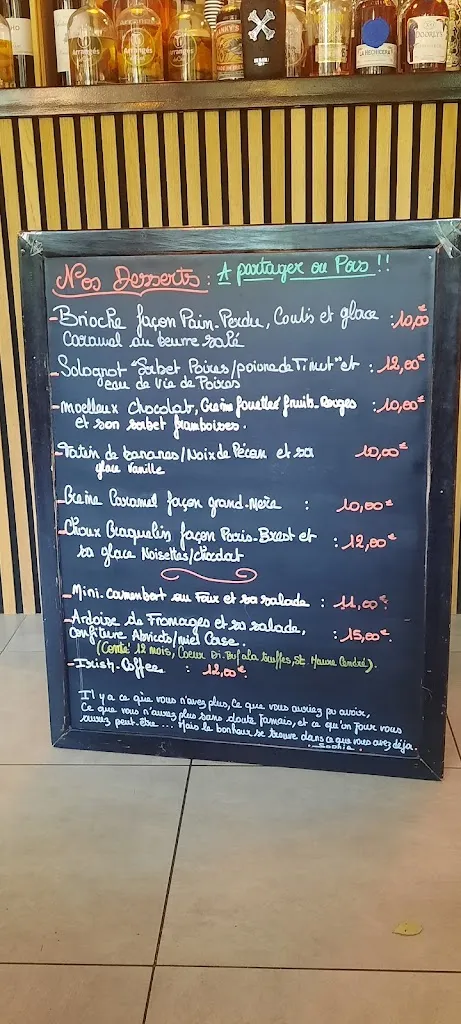 Arrangés
Arrangés
LA HECHICERA
DOORLY'S
Nos Desserts : A partager ou Pas !!
- Brioche façon Pain-Perdu, Coulis et glace : 10,00€
Caramel au beurre salé
- Solognot "Sorbet Poires/poivre de Timut" et : 12,00€
eau de Vie de Poires
- Moelleux Chocolat, Crème fouettée fruits-Rouges : 10,00€
et son sorbet framboises.
- Tatin de bananes/Noix de Pécan et sa 10,00€
glace vanille
- Crème Caramel façon grand-Mère : 10,00€
- Choux Craquelin façon Paris-Brest et : 12,00€
sa glace Noisettes/chocolat
- Mini-camembert au Four et sa salade : 11,00€
- Ardoise de Fromages et sa salade, : 15,00€
Confiture Abricots/miel Corse.
(Comté 12 mois, Coeur Di Buf ala truffes, St Maure Cendré).
- Irish-Coffee : 12,00€
Il y a ce que vous n'avez plus, Ce que vous auriez pu avoir,
Ce que vous n'aurez plus sans doute Jamais, et ce qu'un Jour vous
aurez peut-être... Mais le bonheur se trouve dans ce que vous avez déjà.